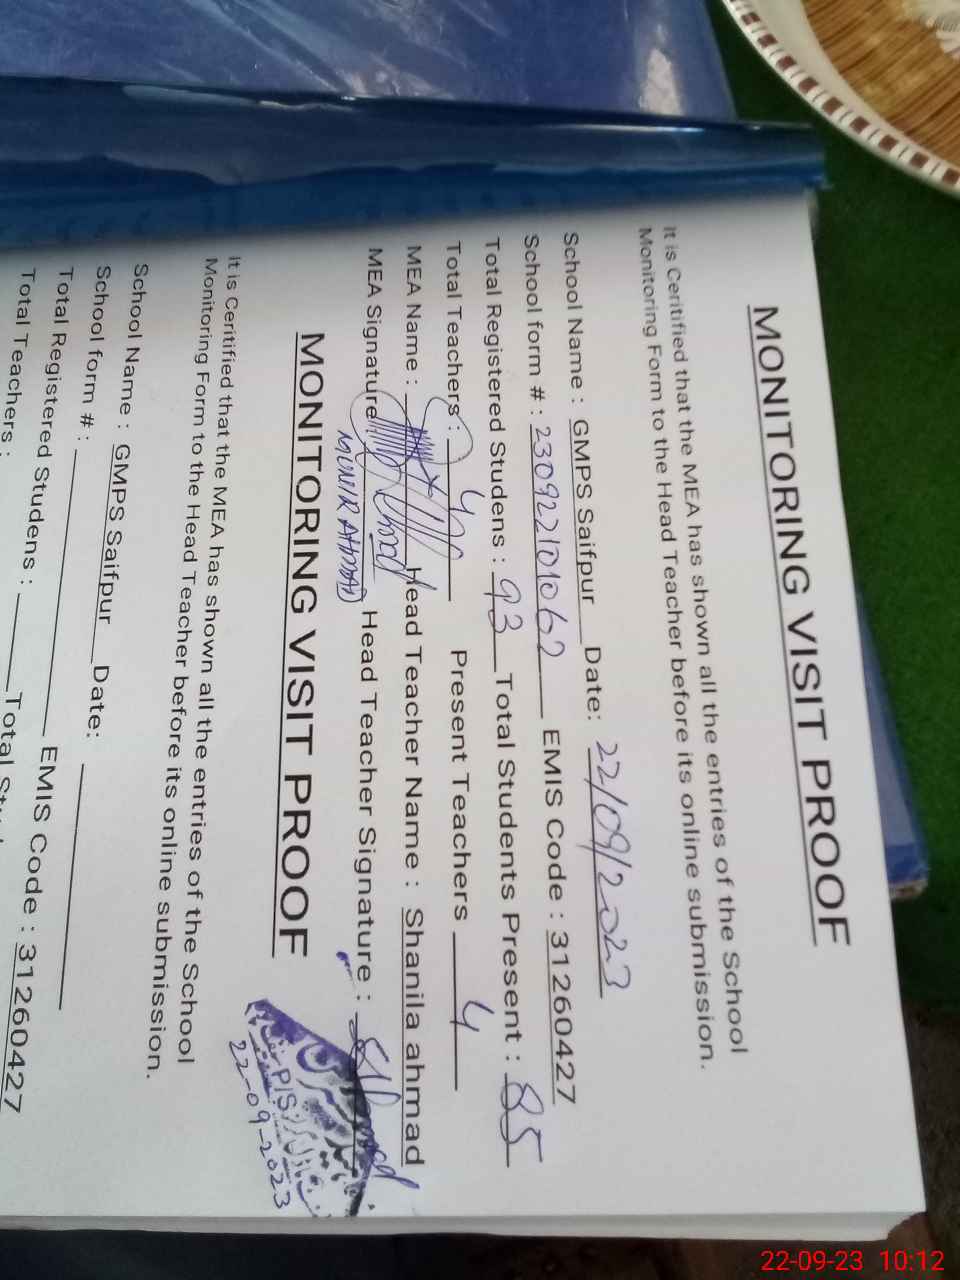 MONITORING VISIT PROOF
It is Ceritified that the MEA has shown all the entries of the School
Monitoring Form to the Head Teacher before its online submission.
School Name : GMPS Saifpur Date: 22/09/2023
School form # : 230922101062 EMIS Code : 31260427
Total Registered Studens : 93 Total Students Present : 85
Total Teachers : 4 Present Teachers 4
MEA Name : Head Teacher Name : Shanila ahmad
MEA Signature MUNIR AHMAD Head Teacher Signature :
22-09-2023
MONITORING VISIT PROOF
It is Ceritified that the MEA has shown all the entries of the School
Monitoring Form to the Head Teacher before its online submission.
School Name : GMPS Saifpur Date:
School form # : EMIS Code : 31260427
Total Registered Studens : Total
Total Teachers :
22-09-23 10:12